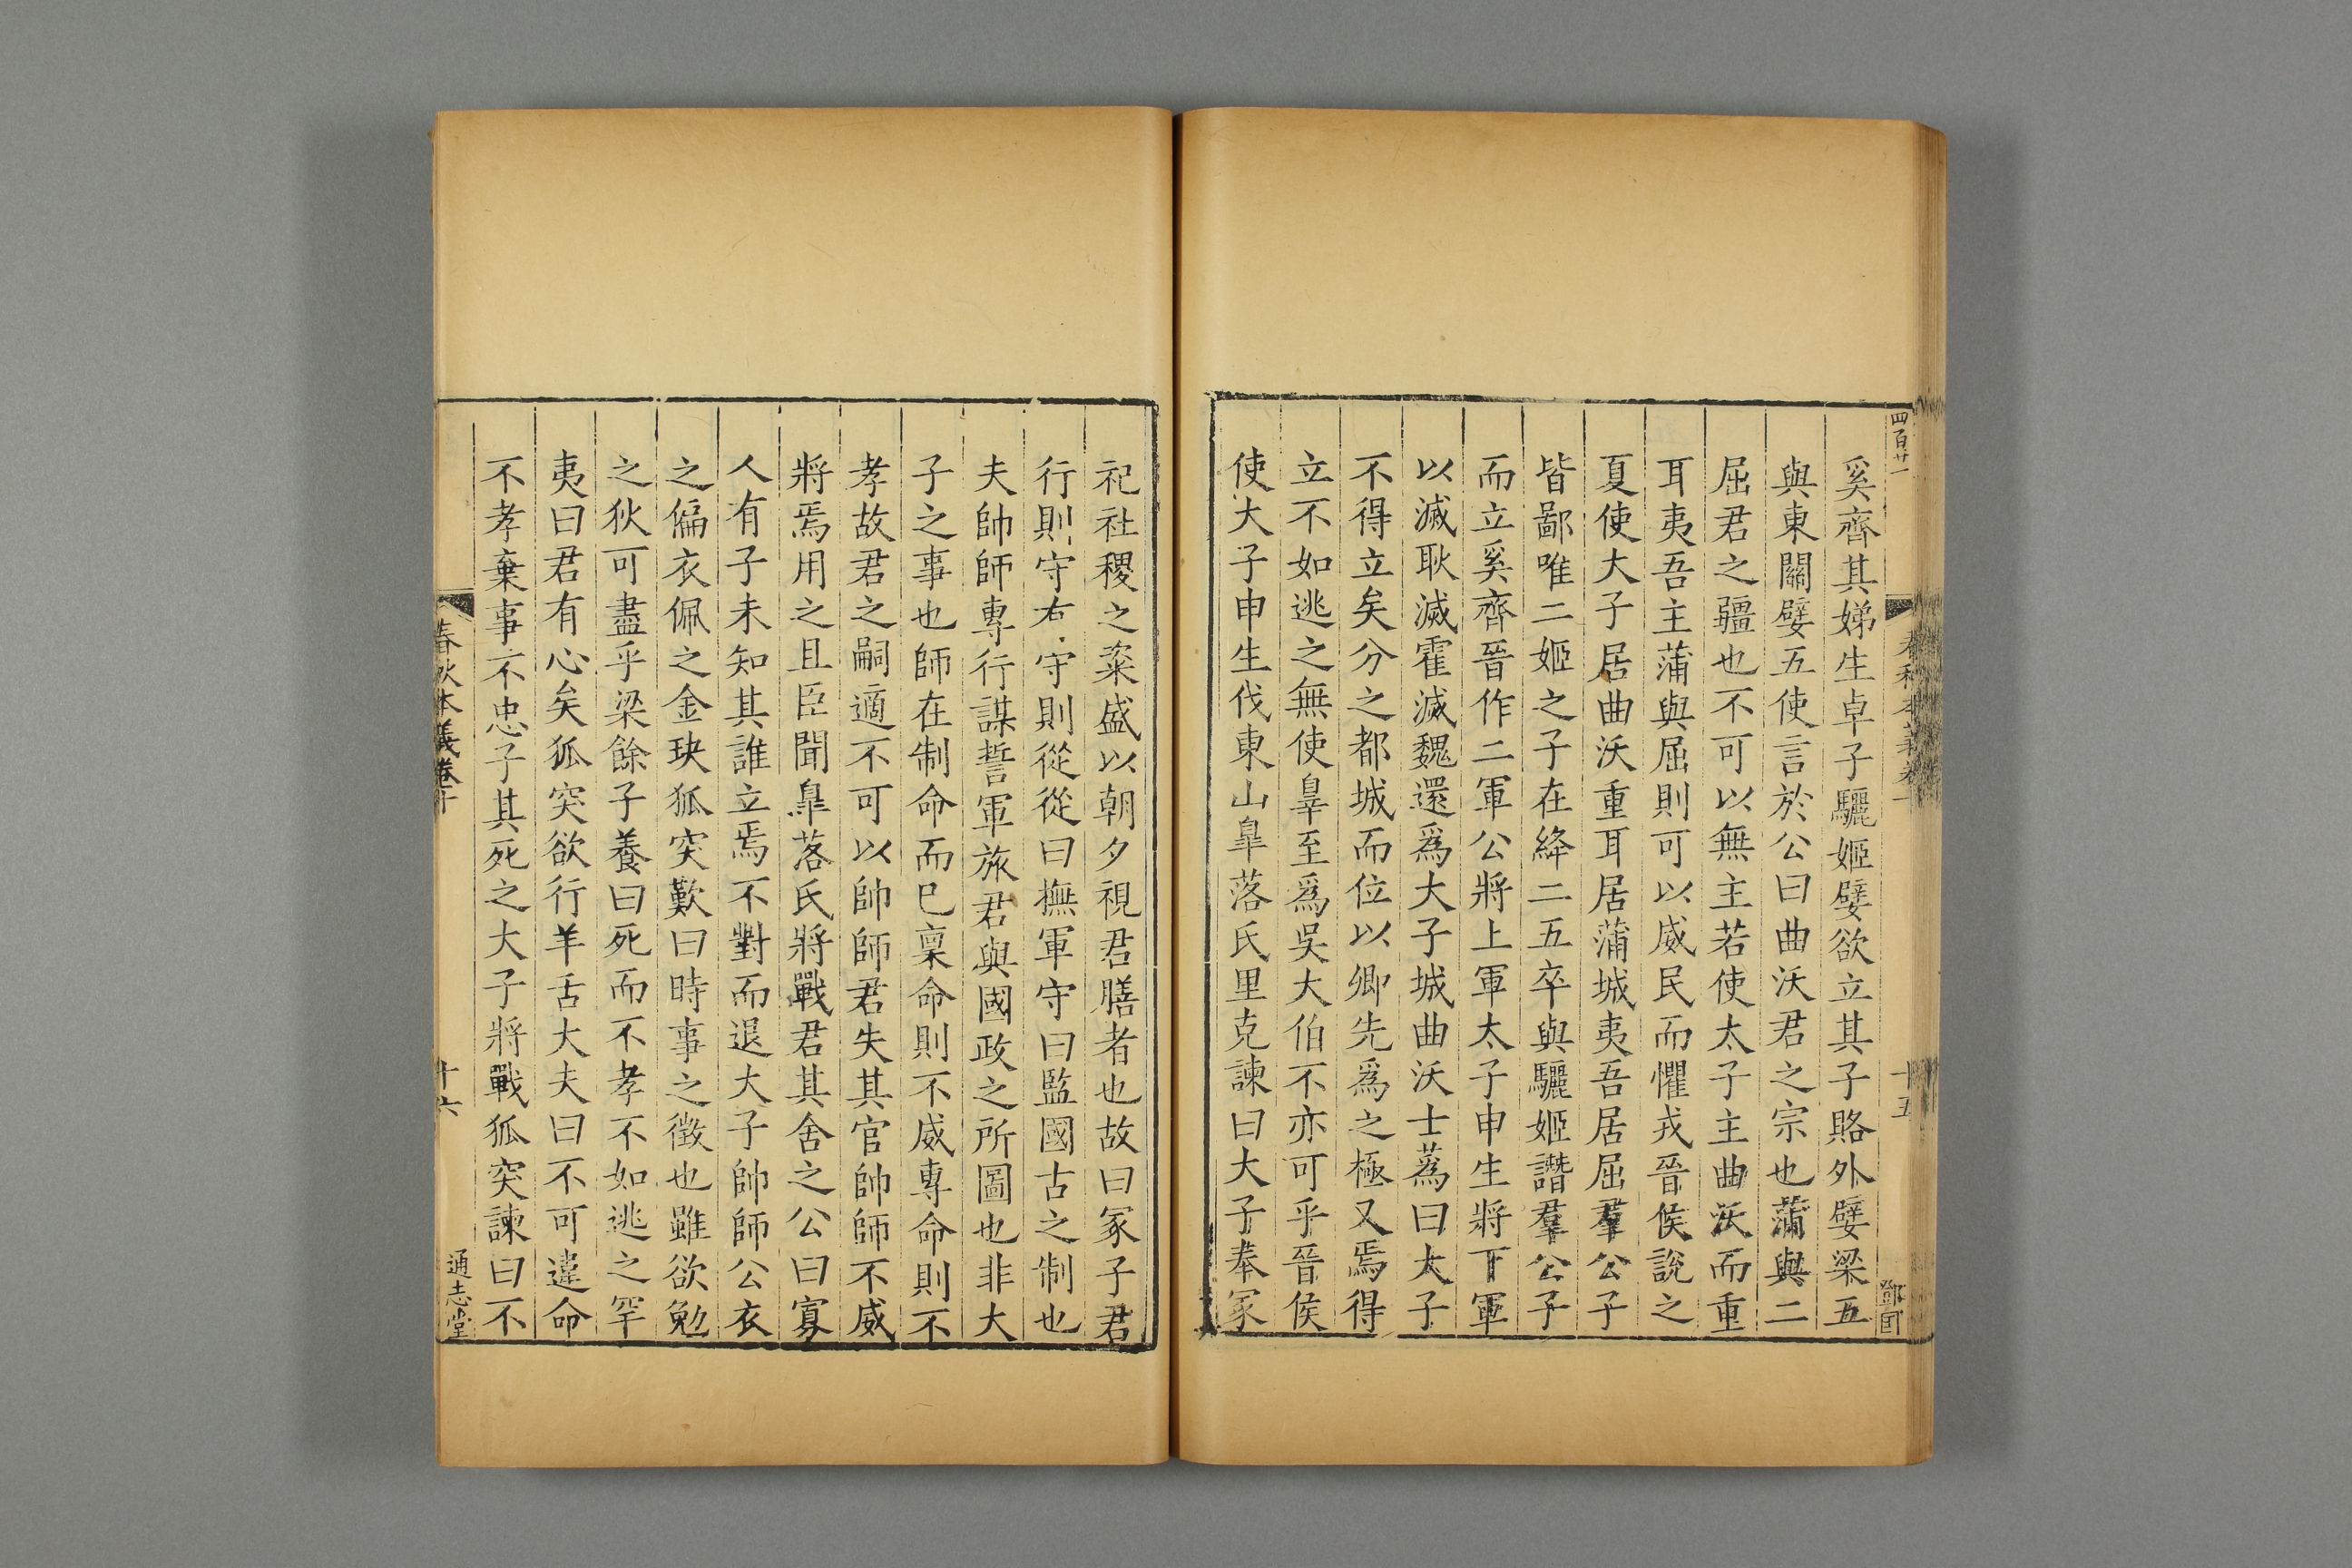 四百廿一
春秋本義卷十
十五
鄧國
奚齊其娣生卓子驪姬嬖欲立其子賂外嬖梁五
與東關嬖五使言於公曰曲沃君之宗也蒲與二
屈君之疆也不可以無主若使太子主曲沃而重
耳夷吾主蒲與屈則可以威民而懼戎晉侯說之
夏使大子居曲沃重耳居蒲城夷吾居屈羣公子
皆鄙唯二姬之子在絳二五卒與驪姬譖羣公子
而立奚齊晉作二軍公將上軍太子申生將下軍
以滅耿滅霍滅魏還爲大子城曲沃士蔿曰太子
不得立矣分之都城而位以卿先爲之極又焉得
立不如逃之無使辠至爲吳大伯不亦可乎晉侯
使大子申生伐東山皐落氏里克諫曰大子奉冢
祀社稷之粢盛以朝夕視君膳者也故曰冢子君
行則守有守則從從曰撫軍守曰監國古之制也
夫帥師專行謀誓軍旅君與國政之所圖也非大
子之事也師在制命而已稟命則不威專命則不
孝故君之嗣適不可以帥師君失其官帥師不威
將焉用之且臣聞皐落氏將戰君其舍之公曰寡
人有子未知其誰立焉不對而退大子帥師公衣
之偏衣佩之金玦狐突歎曰時事之徵也雖欲勉
之狄可盡乎梁餘子養曰死而不孝不如逃之罕
夷曰君有心矣狐突欲行羊舌大夫曰不可違命
不孝棄事不忠子其死之大子將戰狐突諫曰不
春秋本義卷十
十六
通志堂